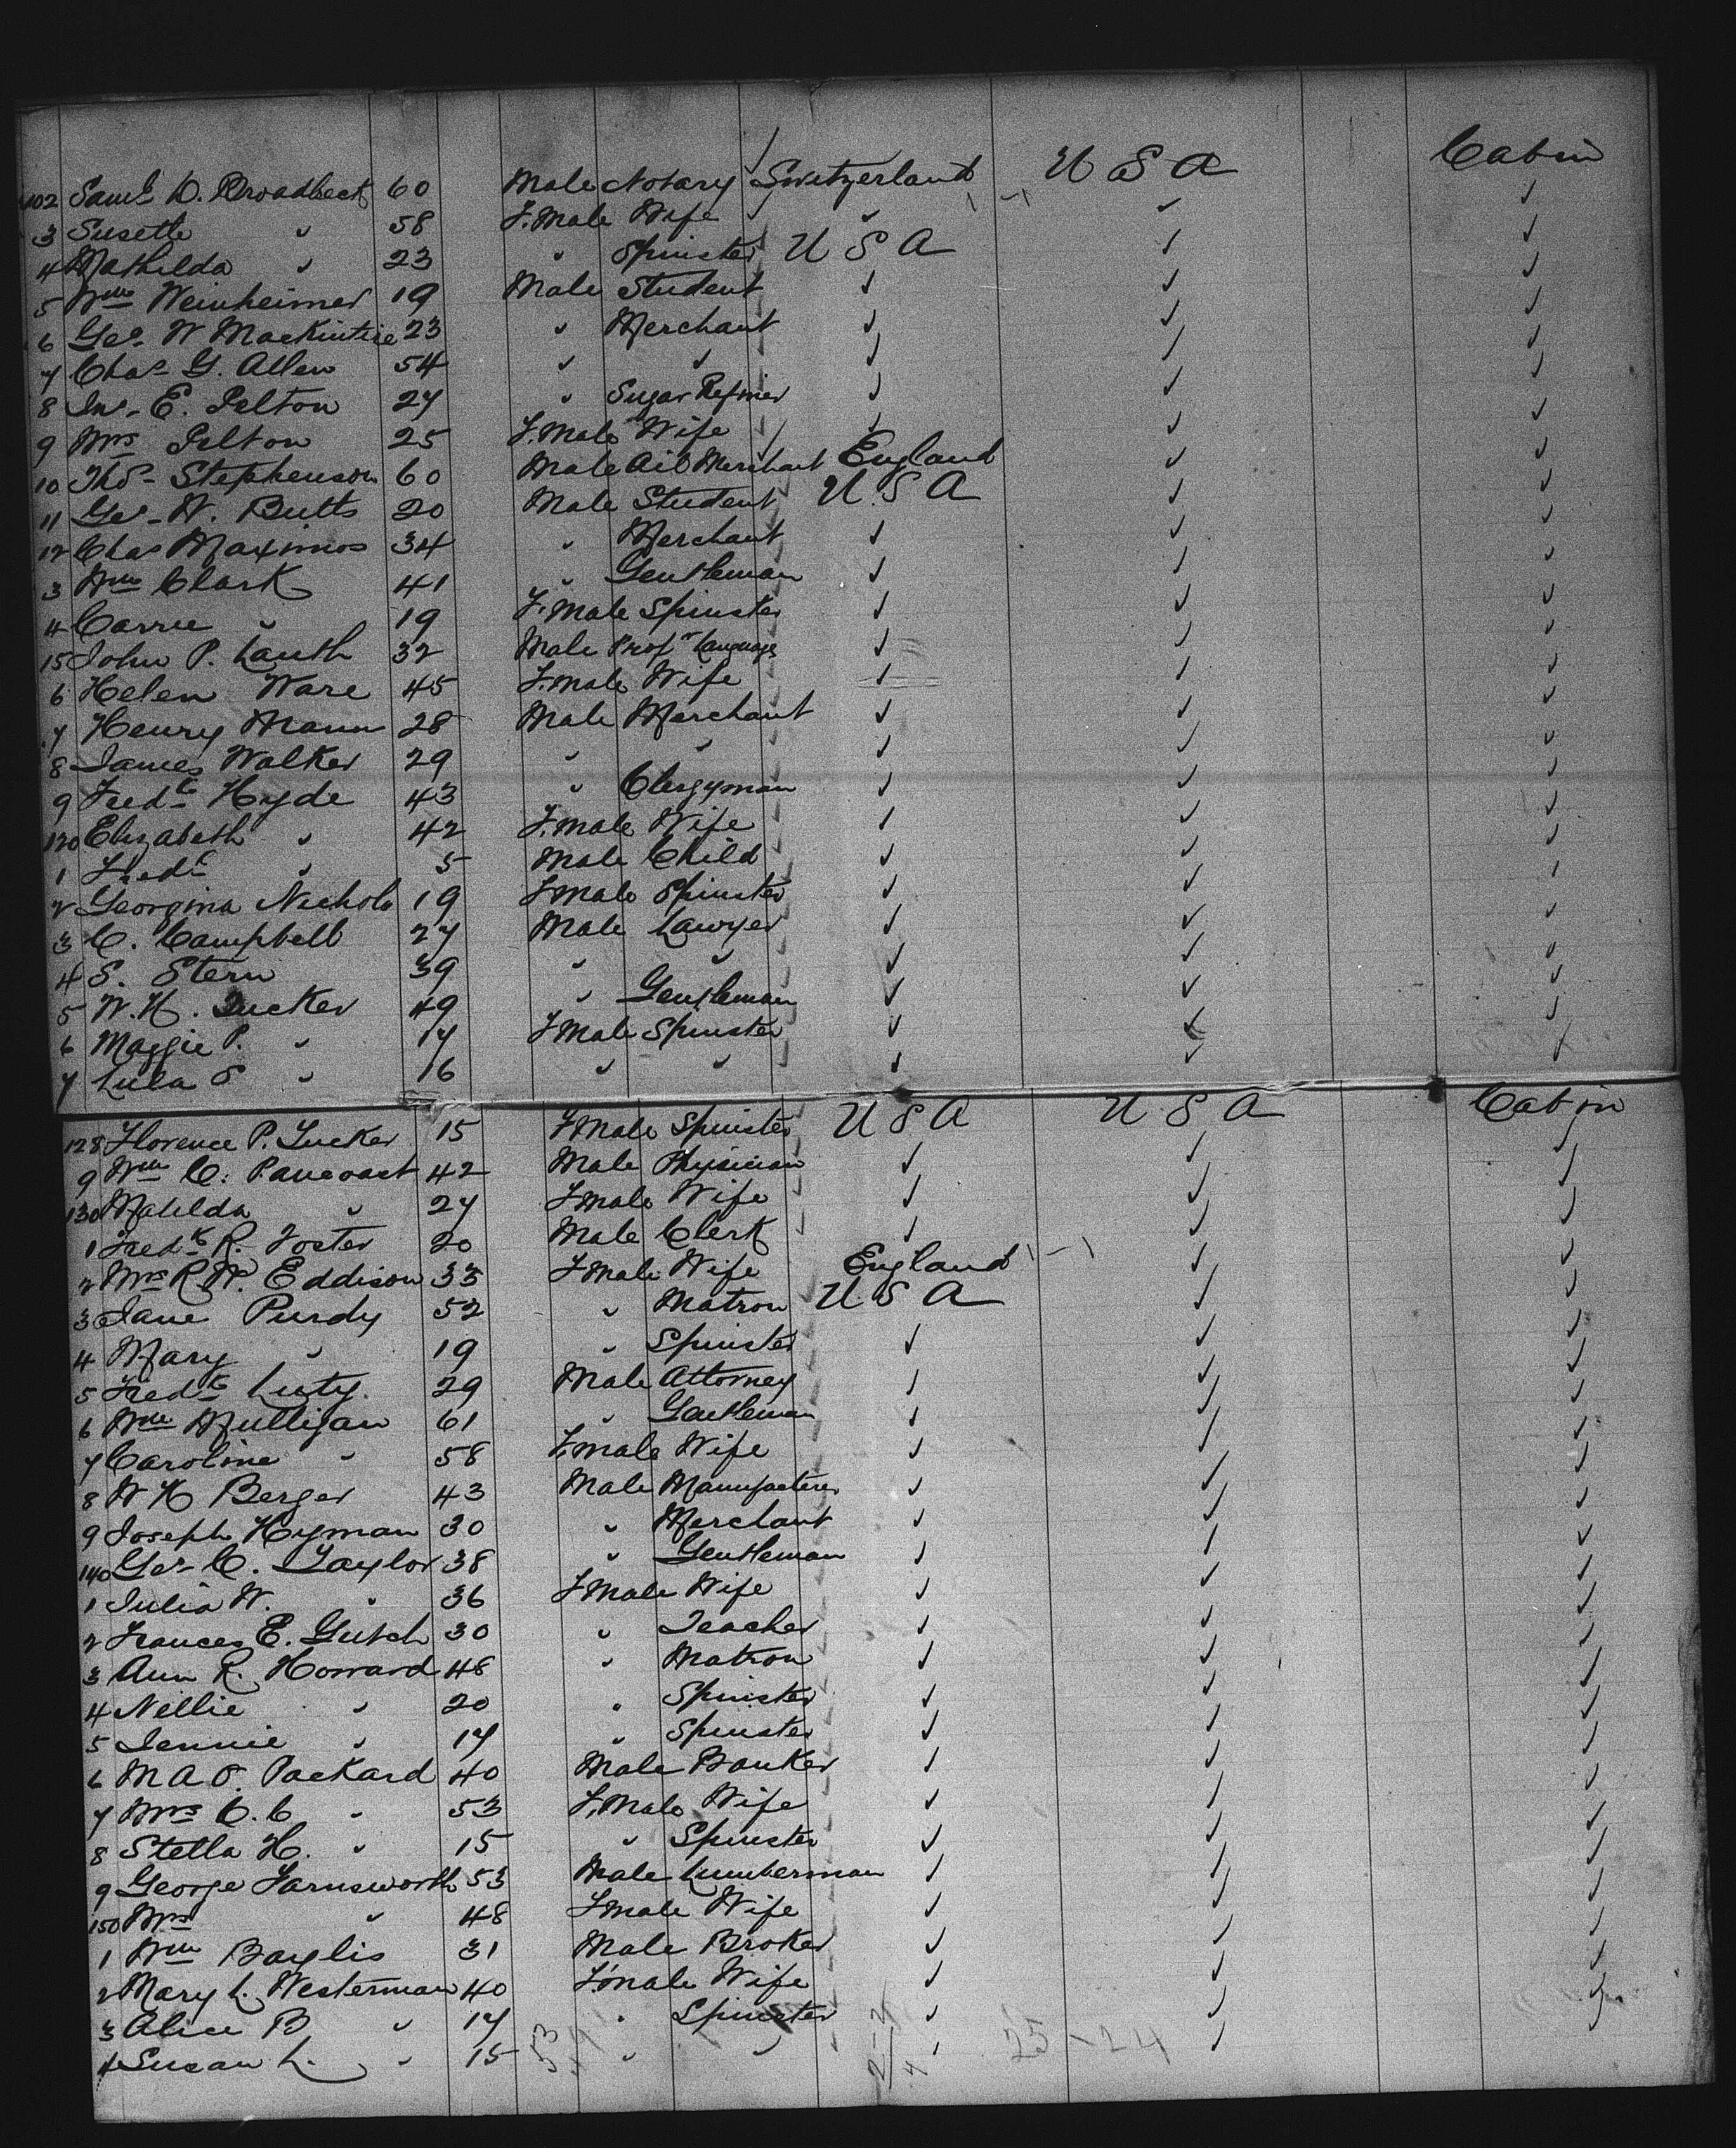 102 Saml D. Brodbeck 60 Male Notary Switzerland U S A Cabin
3 Susette " 58 F.male Wife " " "
4 Mathilda " 23 " Spinster U S A " "
5 Wm Weinheimer 19 Male Student " " "
6 Geo. W Mackintire 23 " Merchant " " "
7 Chas G. Allen 54 " " " " "
8 Jno. E. Pelton 27 " Sugar Refiner " " "
9 Mrs Pelton 25 F.male Wife " " "
10 Thos Stephenson 60 Male Oil Merchant England " "
11 Geo. W. Butts 20 Male Student U S A " "
12 Chas Maximos 34 " Merchant " " "
3 Wm Clark 41 " Gentleman " " "
4 Carrie " 19 F.male Spinster " " "
15 John P. Lauth 32 Male Profr Language " " "
6 Helen Ware 45 F.male Wife " " "
7 Henry Mann 28 Male Merchant " " "
8 James Walker 29 " " " " "
9 Fredk Hyde 43 " Clergyman " " "
120 Elizabeth " 42 F.male Wife " " "
1 Fredk " 5 Male Child " " "
2 Georgina Nichols 19 F.male Spinster " " "
3 C. Campbell 27 Male Lawyer " " "
4 S. Stern 39 " " " " "
5 W.H. Tucker 49 " Gentleman " " "
6 Maggie P. " 17 F.male Spinster " " "
7 Lula S " 16 " " " " "
128 Florence P. Tucker 15 F.male Spinster U S A U S A Cabin
9 Wm C. Pancoast 42 Male Physician " " "
130 Matilda " 27 F.male Wife " " "
1 Fredk R. Foster 20 Male Clerk " " "
2 Mrs R.W. Eddison 33 F.male Wife England " "
3 Jane Purdy 52 " Matron U S A " "
4 Mary " 19 " Spinster " " "
5 Fredk Luty. 29 Male Attorney " " "
6 Wm Mulligan 61 " Gentleman " " "
7 Caroline " 58 F.male Wife " " "
8 W H Berger 43 Male Manufacturer " " "
9 Joseph Hyman 30 " Merchant " " "
140 Geo. C. Taylor 38 " Gentleman " " "
1 Julia W. " 36 F.male Wife " " "
2 Frances E. Gutch 30 " Teacher " " "
3 Ann R. Howard 48 " Matron " " "
4 Nellie " 20 " Spinster " " "
5 Jennie " 17 " Spinster " " "
6 M A O. Packard 40 Male Banker " " "
7 Mrs C. C " 53 F.male Wife " " "
8 Stella H. " 15 " Spinster " " "
9 George Farnsworth 53 Male Lumberman " " "
150 Mrs " 48 F.male Wife " " "
1 Wm Baylis 31 Male Broker " " "
2 Mary L. Westerman 40 F.male Wife " " "
3 Alice B " 17 " Spinster " " "
4 Susan L. " 15 " " " "
53 25-24